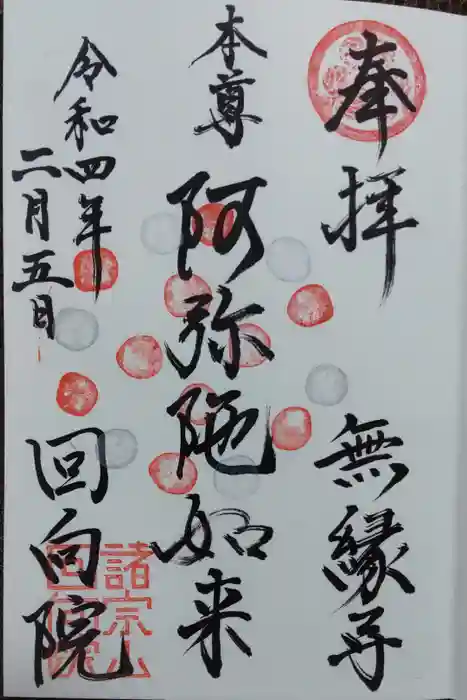 奉拝
無縁寺
本尊
阿弥陀如来
令和四年
二月五日
回向院
諸宗山
回向院